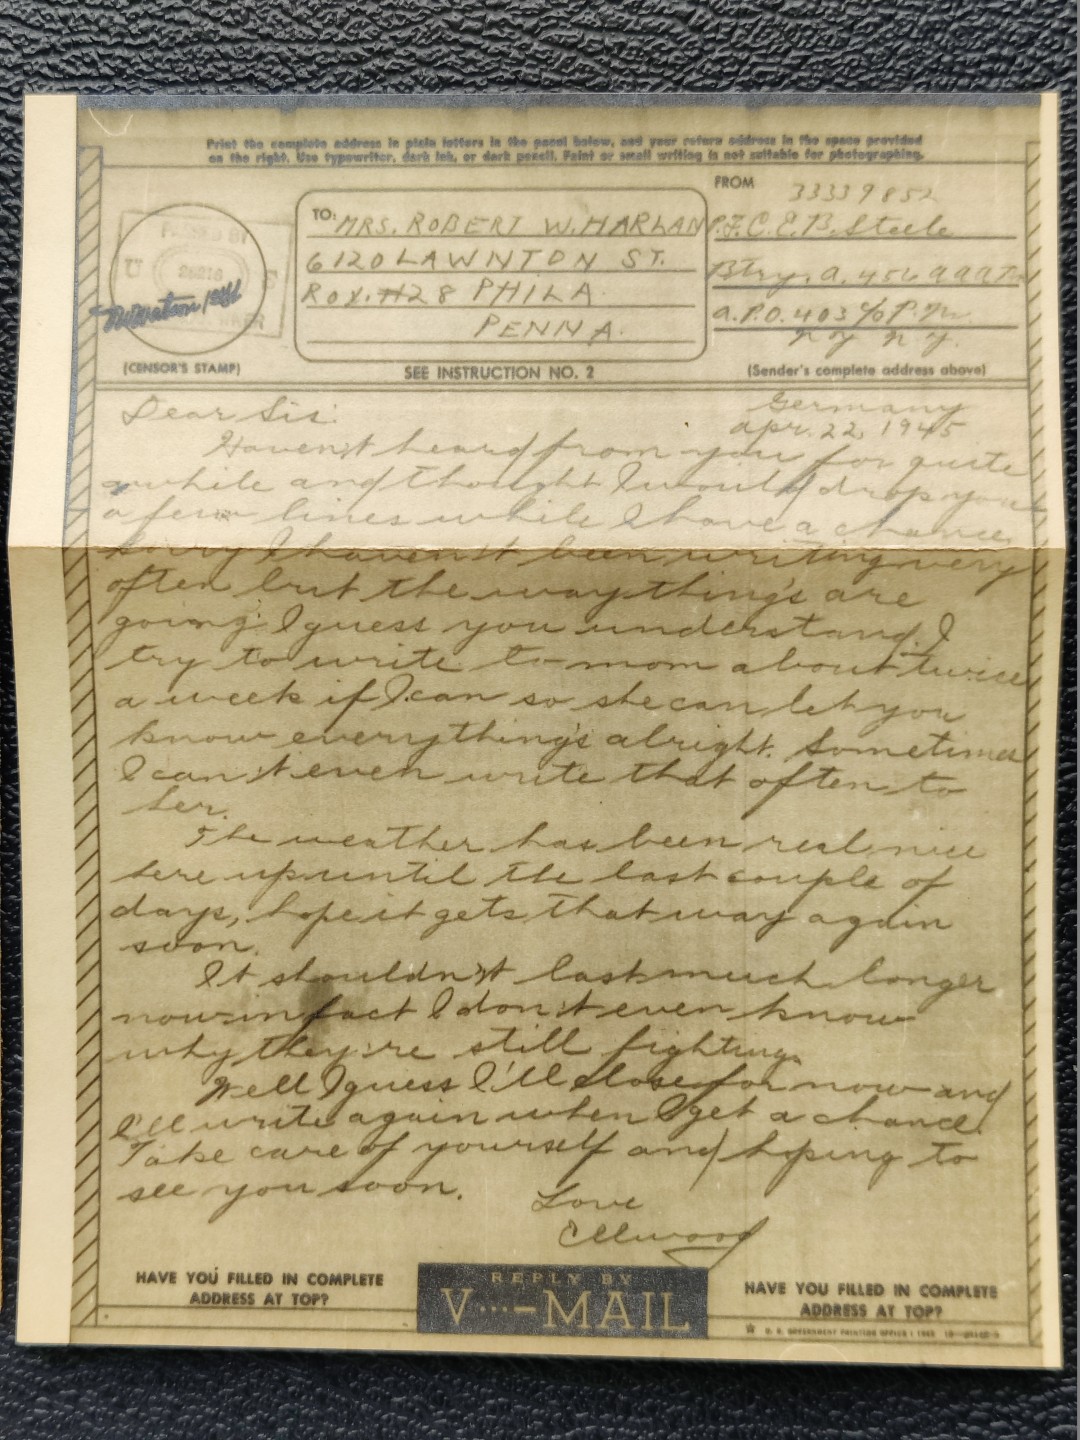 Print the complete address in plain letters in the panel below, and your return address in the space provided
on the right. Use typewriter, dark ink, or dark pencil. Faint or small writing is not suitable for photographing.
PASSED BY
U S
(CENSOR'S STAMP)
TO: MRS. ROBERT W. HARLAN
6120 LAWNTON ST.
ROX. #28 PHILA.
PENNA.
SEE INSTRUCTION NO. 2
FROM
33339852
P.F.C. E. B. Steele
Btry. A. 456 AAA
A.P.O. 403 c/o P.M.
N.Y. N.Y.
(Sender's complete address above)
Germany
Apr. 22, 1945
Dear Sis:
Haven't heard from you for quite
awhile and thought I would drop you
a few lines while I have a chance.
Sorry I haven't been writing very
often but the way thing's are
going I guess you understand. I
try to write to mom about twice
a week if I can so she can let you
know everything's alright. Sometimes
I can't even write that often to
her.
The weather has been real nice
here up until the last couple of
days, hope it gets that way again
soon.
It shouldn't last much longer
now in fact I don't even know
why they're still fighting.
Well I guess I'll close for now and
I'll write again when I get a chance.
Take care of yourself and hoping to
see you soon.
Love
Ellwood
HAVE YOU FILLED IN COMPLETE
ADDRESS AT TOP?
REPLY BY
V···—MAIL
HAVE YOU FILLED IN COMPLETE
ADDRESS AT TOP?
U. S. GOVERNMENT PRINTING OFFICE